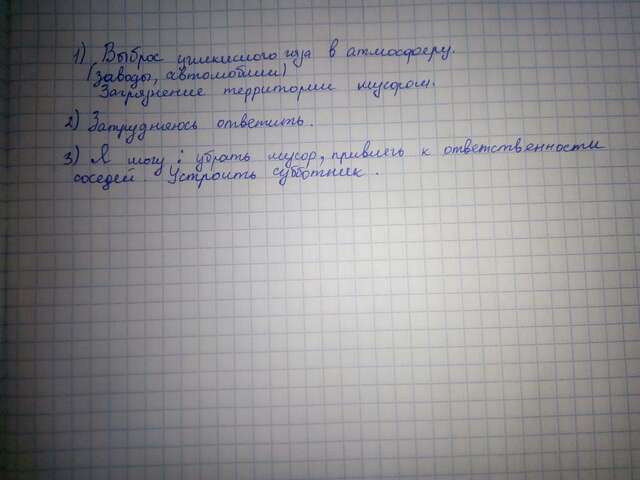 1) Выброс углекислого газа в атмосферу.
(заводы, автомобили)
Загрязнение территории мусором.
2) Затрудняюсь ответить.
3) Я могу: убрать мусор, привлечь к ответственности
соседей. Устроить субботник.